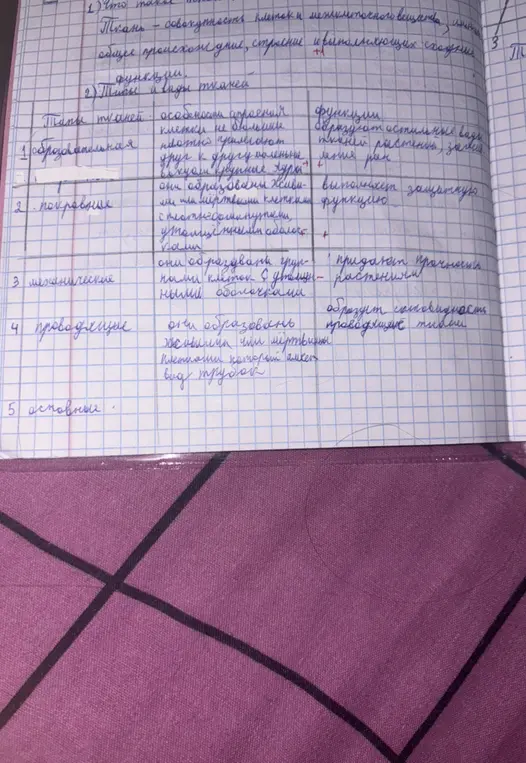 1) Что такое
Ткань - совокупность клеток и межклеточного вещества,
общее происхождение, строение и выполняющих сходные
функции.
2) Типы и виды тканей
Типы тканей особенности строения функции
1 образовательная клетки не большие образуют остальные виды
плотно прилегают тканей растения,
друг к другу
крупные ядра
2 покровные они образованы живы- выполняет защитную
ми или мертвыми клетками функцию
с плотно
утолщенными оболоч-
ками
3 механические они образованы груп- придают прочность
пами клеток с утолщен- растениям
ными оболочками
4 проводящие они образованы образует
живыми или мертвыми проводящие
клетками который имеет
вид трубок
5 основные.
3